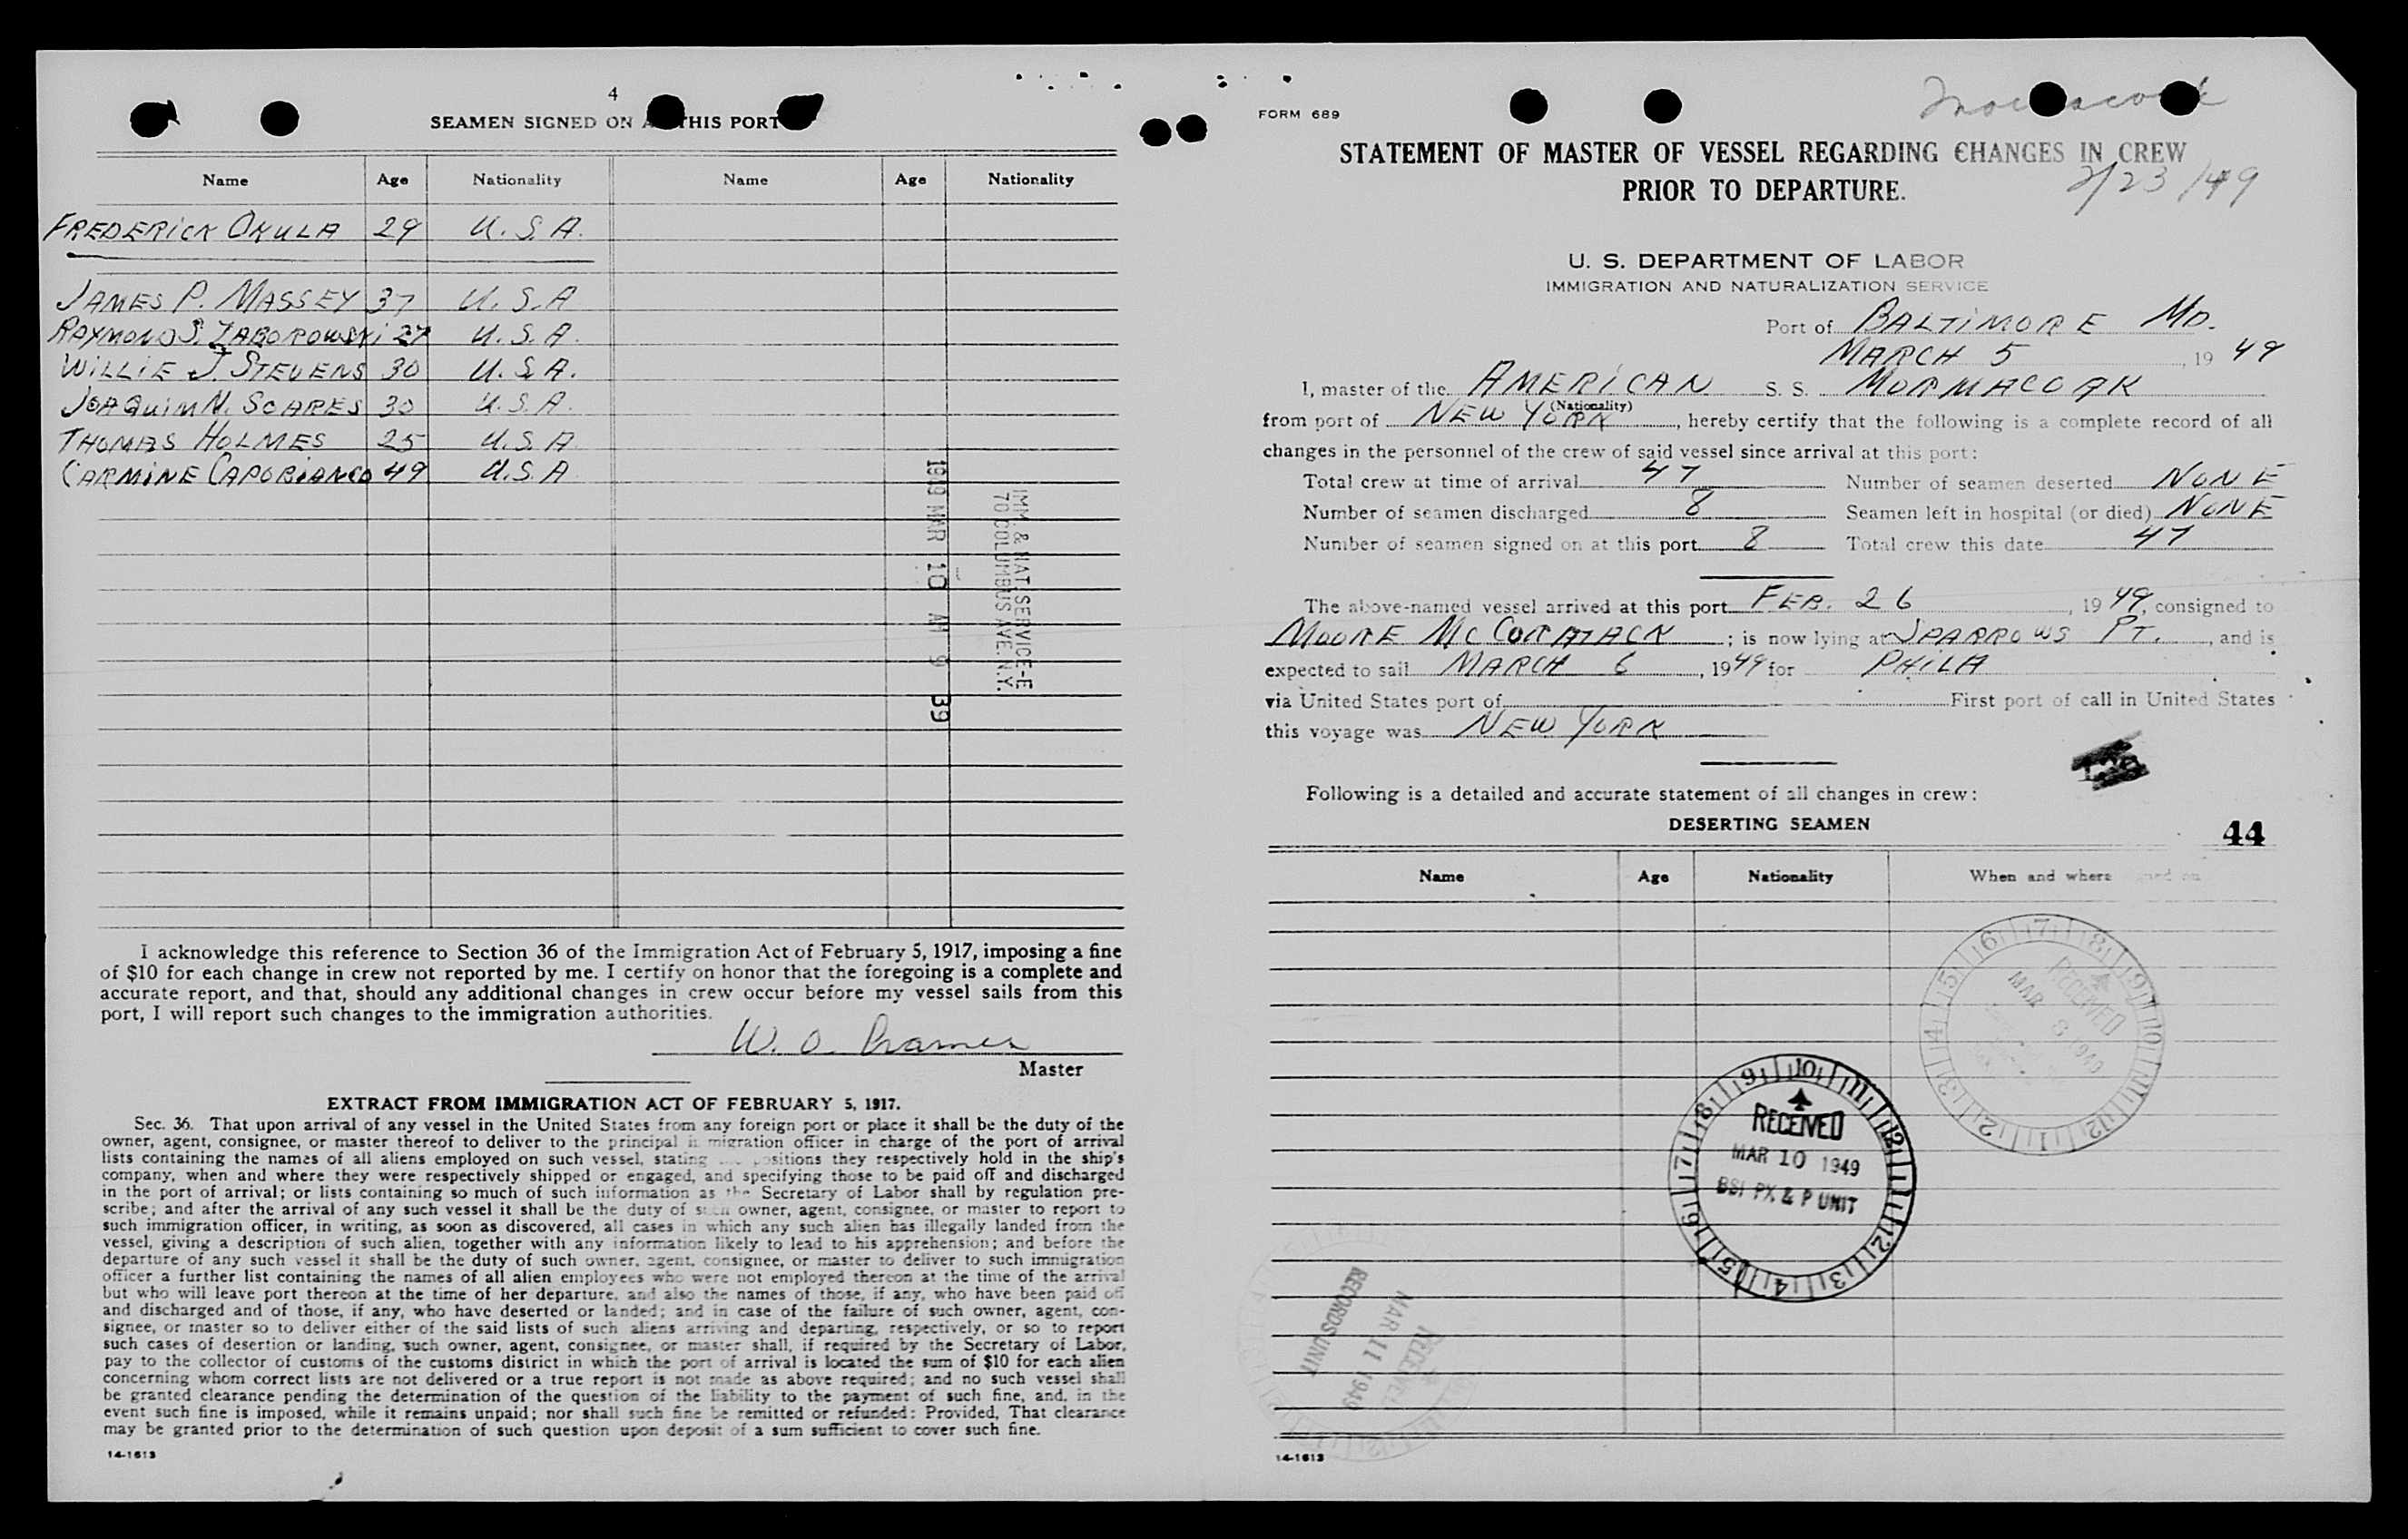 4
SEAMEN SIGNED ON THIS PORT
Name Age Nationality Name Age Nationality
FREDERICK OKULA 29 U.S.A.
JAMES P. MASSEY 37 U.S.A
RAYMOND S. ZABOROWSKI 27 U.S.A.
WILLIE J. STEVENS 30 U.S.A.
JOAQUIM N. SOARES 30 U.S.A.
THOMAS HOLMES 25 U.S.A
CARMINE CAPOBIANCO 49 U.S.A
IMM. & NAT. SERVICE-E
70 COLUMBUS AVE. N.Y.
MAR 10 AM 9 39
I acknowledge this reference to Section 36 of the Immigration Act of February 5, 1917, imposing a fine
of $10 for each change in crew not reported by me. I certify on honor that the foregoing is a complete and
accurate report, and that, should any additional changes in crew occur before my vessel sails from this
port, I will report such changes to the immigration authorities.
W. O.
Master
EXTRACT FROM IMMIGRATION ACT OF FEBRUARY 5, 1917.
Sec. 36. That upon arrival of any vessel in the United States from any foreign port or place it shall be the duty of the
owner, agent, consignee, or master thereof to deliver to the principal immigration officer in charge of the port of arrival
lists containing the names of all aliens employed on such vessel, stating positions they respectively hold in the ship's
company, when and where they were respectively shipped or engaged, and specifying those to be paid off and discharged
in the port of arrival; or lists containing so much of such information as the Secretary of Labor shall by regulation pre-
scribe; and after the arrival of any such vessel it shall be the duty of such owner, agent, consignee, or master to report to
such immigration officer, in writing, as soon as discovered, all cases in which any such alien has illegally landed from the
vessel, giving a description of such alien, together with any information likely to lead to his apprehension; and before the
departure of any such vessel it shall be the duty of such owner, agent, consignee, or master to deliver to such immigration
officer a further list containing the names of all alien employees who were not employed thereon at the time of the arrival
but who will leave port thereon at the time of her departure, and also the names of those, if any, who have been paid off
and discharged and of those, if any, who have deserted or landed; and in case of the failure of such owner, agent, con-
signee, or master so to deliver either of the said lists of such aliens arriving and departing, respectively, or so to report
such cases of desertion or landing, such owner, agent, consignee, or master shall, if required by the Secretary of Labor,
pay to the collector of customs of the customs district in which the port of arrival is located the sum of $10 for each alien
concerning whom correct lists are not delivered or a true report is not made as above required; and no such vessel shall
be granted clearance pending the determination of the question of the liability to the payment of such fine, and, in the
event such fine is imposed, while it remains unpaid; nor shall such fine be remitted or refunded: Provided, That clearance
may be granted prior to the determination of such question upon deposit of a sum sufficient to cover such fine.
14-1613
FORM 689
STATEMENT OF MASTER OF VESSEL REGARDING CHANGES IN CREW
PRIOR TO DEPARTURE.
2/23/49
U. S. DEPARTMENT OF LABOR
IMMIGRATION AND NATURALIZATION SERVICE
Port of BALTIMORE MD.
MARCH 5, 19 49
I, master of the AMERICAN S. S. MORMACOAK
(Nationality)
from port of NEW YORK, hereby certify that the following is a complete record of all
changes in the personnel of the crew of said vessel since arrival at this port:
Total crew at time of arrival 47 Number of seamen deserted NONE
Number of seamen discharged 8 Seamen left in hospital (or died) NONE
Number of seamen signed on at this port 8 Total crew this date 47
The above-named vessel arrived at this port FEB. 26, 1949, consigned to
MOORE MCCORMACK; is now lying at SPARROWS PT., and is
expected to sail MARCH 6, 1949 for PHILA
via United States port of First port of call in United States
this voyage was NEW YORK
Following is a detailed and accurate statement of all changes in crew:
DESERTING SEAMEN
44
Name Age Nationality When and where signed on
RECEIVED
MAR 8 1949
RECEIVED
MAR 10 1949
BSI PX & P UNIT
RECEIVED
MAR 11 1949
RECORDS UNIT
14-1613